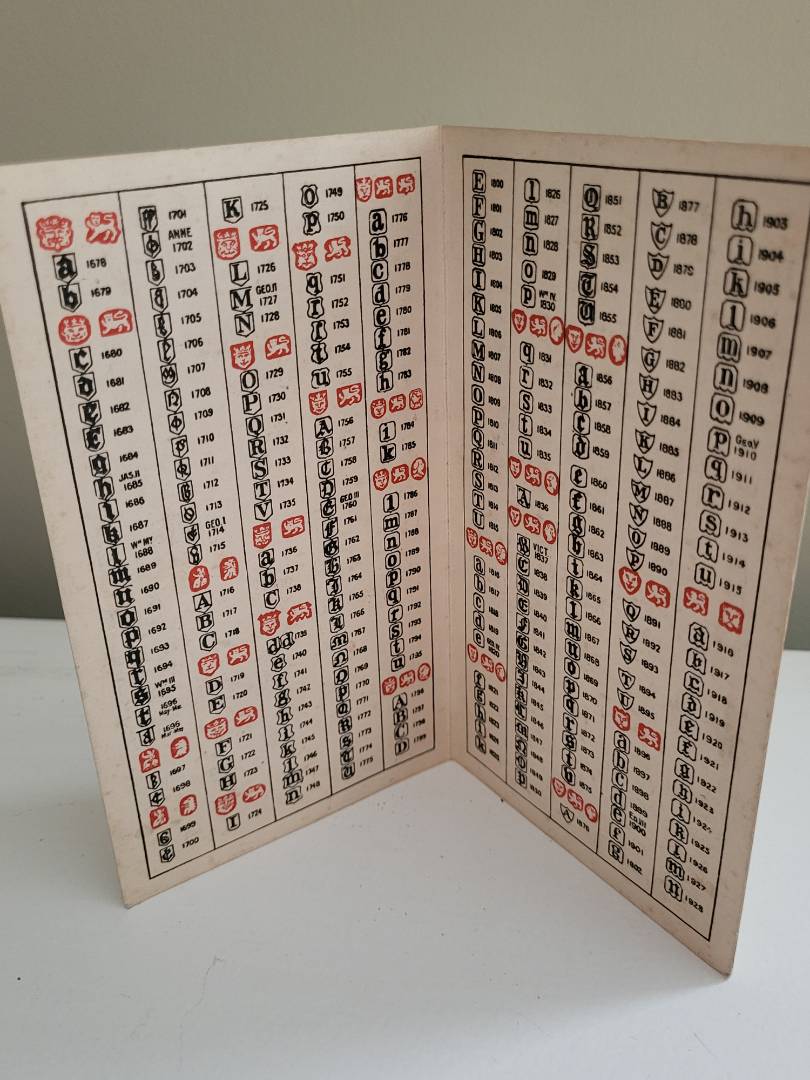 a 1678
b 1679
c 1680
d 1681
e 1682
1683
g 1684
h JAS.II 1685
i 1686
k 1687
l Wm MY 1688
m 1689
n 1690
o 1691
p 1692
q 1693
r 1694
s Wm III 1695
t 1696
1696
1697
1698
1699
1700
1701
ANNE 1702
1703
1704
1705
1706
1707
1708
1709
1710
1711
1712
1713
GEO.I 1714
1715
A 1716
B 1717
C 1718
D 1719
E 1720
F 1721
G 1722
H 1723
I 1724
K 1725
L 1726
M GEO.II 1727
N 1728
O 1729
P 1730
Q 1731
R 1732
S 1733
T 1734
V 1735
a 1736
b 1737
c 1738
d d 1739
e 1740
f 1741
g 1742
h 1743
i 1744
k 1745
l 1746
m 1747
n 1748
O 1749
p 1750
q 1751
r 1752
f 1753
t 1754
u 1755
A 1756
B 1757
C 1758
D 1759
E GEO.III 1760
F 1761
G 1762
H 1763
I 1764
K 1765
L 1766
M 1767
N 1768
O 1769
P 1770
Q 1771
R 1772
S 1773
T 1774
U 1775
a 1776
b 1777
c 1778
d 1779
e 1780
f 1781
g 1782
h 1783
i 1784
k 1785
l 1786
m 1787
n 1788
o 1789
p 1790
q 1791
r 1792
s 1793
t 1794
u 1795
A 1796
B 1797
C 1798
D 1799
E 1800
F 1801
G 1802
H 1803
I 1804
K 1805
L 1806
M 1807
N 1808
O 1809
P 1810
Q 1811
R 1812
S 1813
T 1814
U 1815
a 1816
b 1817
c 1818
d 1819
e 1820
f 1821
g 1822
h 1823
i 1824
k 1825
l 1826
m 1827
n 1828
o 1829
p Wm IV. 1830
q 1831
r 1832
s 1833
t 1834
u 1835
A 1836
B VICT. 1837
C 1838
D 1839
E 1840
F 1841
G 1842
H 1843
I 1844
K 1845
L 1846
M 1847
N 1848
O 1849
P 1850
Q 1851
R 1852
S 1853
T 1854
U 1855
a 1856
b 1857
c 1858
d 1859
e 1860
f 1861
g 1862
h 1863
i 1864
k 1865
l 1866
m 1867
n 1868
o 1869
p 1870
q 1871
r 1872
s 1873
t 1874
u 1875
A 1876
B 1877
C 1878
D 1879
E 1880
F 1881
G 1882
H 1883
I 1884
K 1885
L 1886
M 1887
N 1888
O 1889
P 1890
Q 1891
R 1892
S 1893
T 1894
U 1895
a 1896
b 1897
c 1898
d 1899
e Ed.VII 1900
f 1901
g 1902
h 1903
i 1904
k 1905
l 1906
m 1907
n 1908
o 1909
p Geo.V 1910
q 1911
r 1912
s 1913
t 1914
u 1915
a 1916
b 1917
c 1918
d 1919
e 1920
f 1921
g 1922
h 1923
i 1924
k 1925
l 1926
m 1927
n 1928